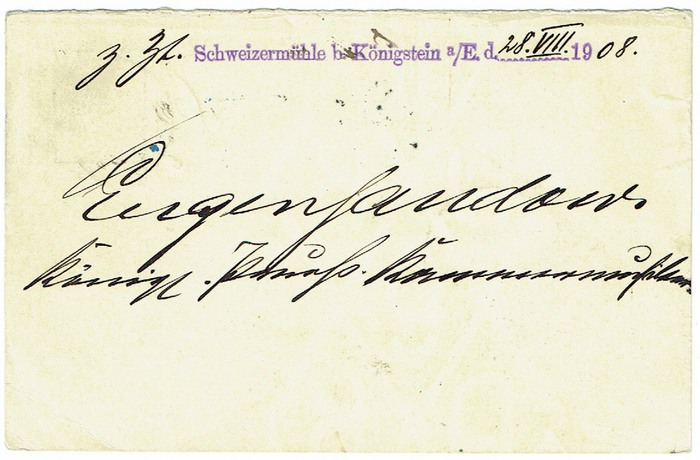 z. Zt. Schweizermühle b. Königstein a/E. d. 28. VIII. 1908.
Eugen Sandow
Königl. Preuß. Kammermusiker